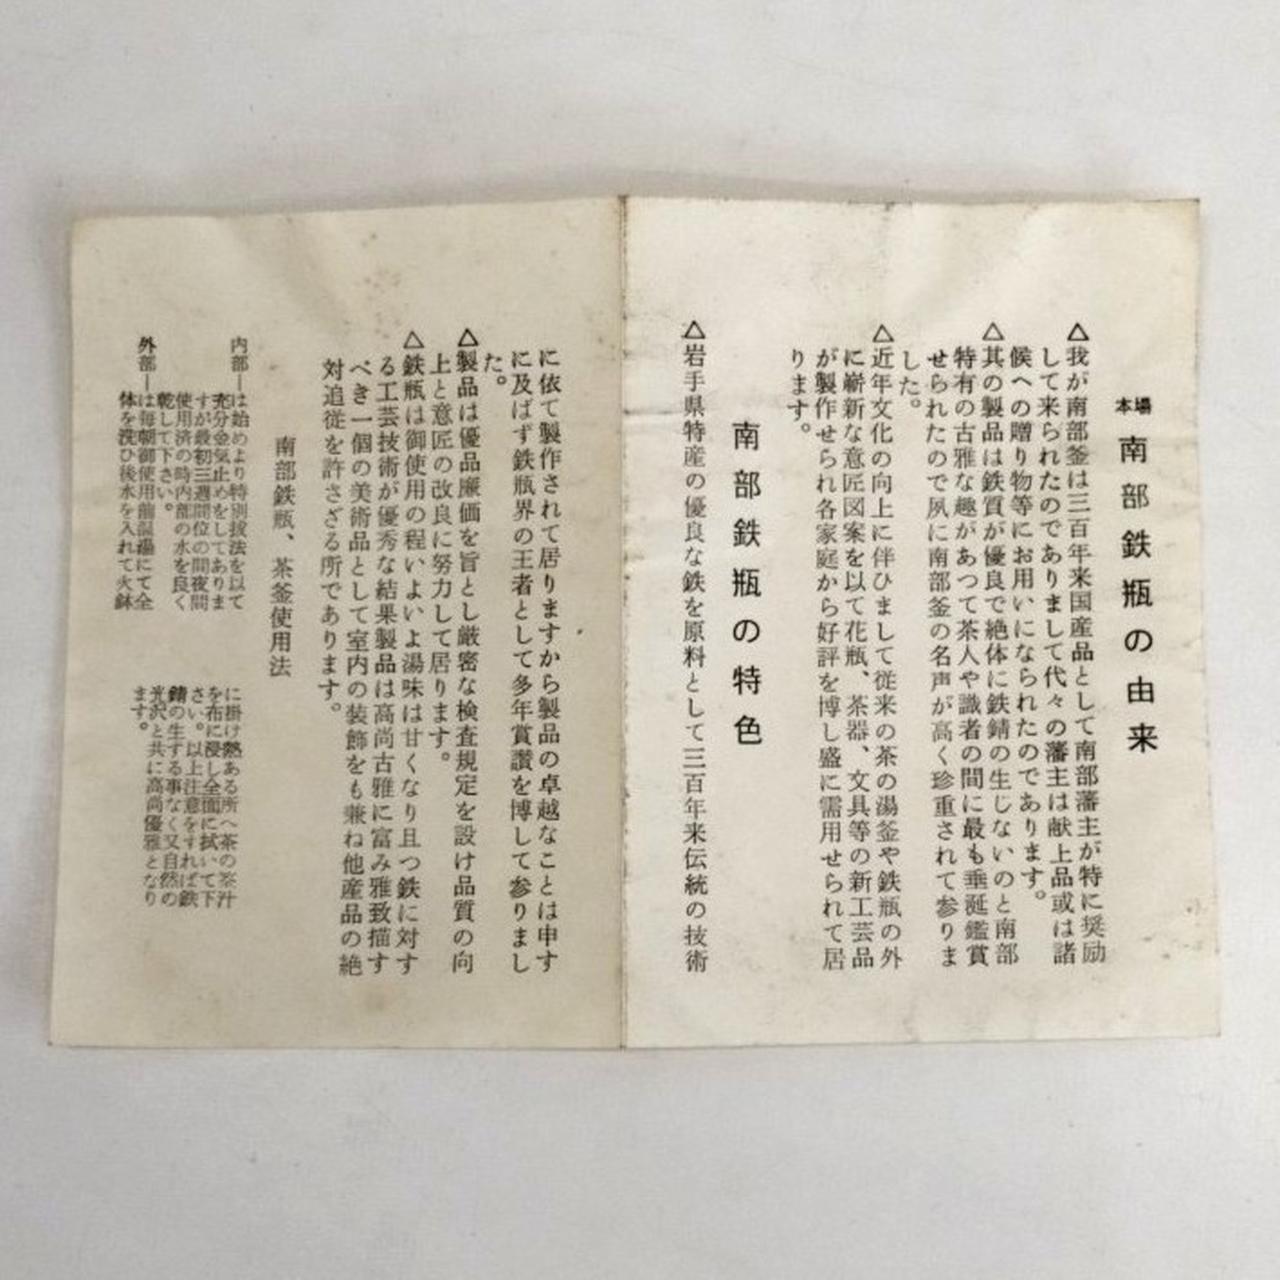 本場 南部鉄瓶の由来
△我が南部釜は三百年来国産品として南部藩主が特に奨励
して来られたのでありまして代々の藩主は献上品或は諸
侯への贈り物等にお用いになられたのであります。
△其の製品は鉄質が優良で絶体に鉄錆の生じないのと南部
特有の古雅な趣があつて茶人や識者の間に最も垂涎鑑賞
せられたので夙に南部釜の名声が高く珍重されて参りま
した。
△近年文化の向上に伴ひまして従来の茶の湯釜や鉄瓶の外
に嶄新な意匠図案を以て花瓶、茶器、文具等の新工芸品
が製作せられ各家庭から好評を博し盛に需用せられて居
ります。
南部鉄瓶の特色
△岩手県特産の優良な鉄を原料として三百年来伝統の技術
に依て製作されて居りますから製品の卓越なことは申す
に及ばず鉄瓶界の王者として多年賞讃を博して参りまし
た。
△製品は優品廉価を旨とし厳密な検査規定を設け品質の向
上と意匠の改良に努力して居ります。
△鉄瓶は御使用の程いよいよ湯味は甘くなり且つ鉄に対す
る工芸技術が優秀な結果製品は高尚古雅に富み雅致描す
べき一個の美術品として室内の装飾をも兼ね他産品の絶
対追従を許さざる所であります。
南部鉄瓶、茶釜使用法
内部―は始めより特別抜法を以て
充分金気止めをしてありま
すが最初三週間位の間夜間
使用済の時内部の水を良く
乾して下さい。
外部―は毎朝御使用前温湯にて全
体を洗ひ後水を入れて火鉢
に掛け熱ある所へ茶の煮汁
を布に浸し全面に拭いて下
さい。以上注意をすれば鉄
錆の生する事なく又自然の
光沢と共に高尚優雅となり
ます。